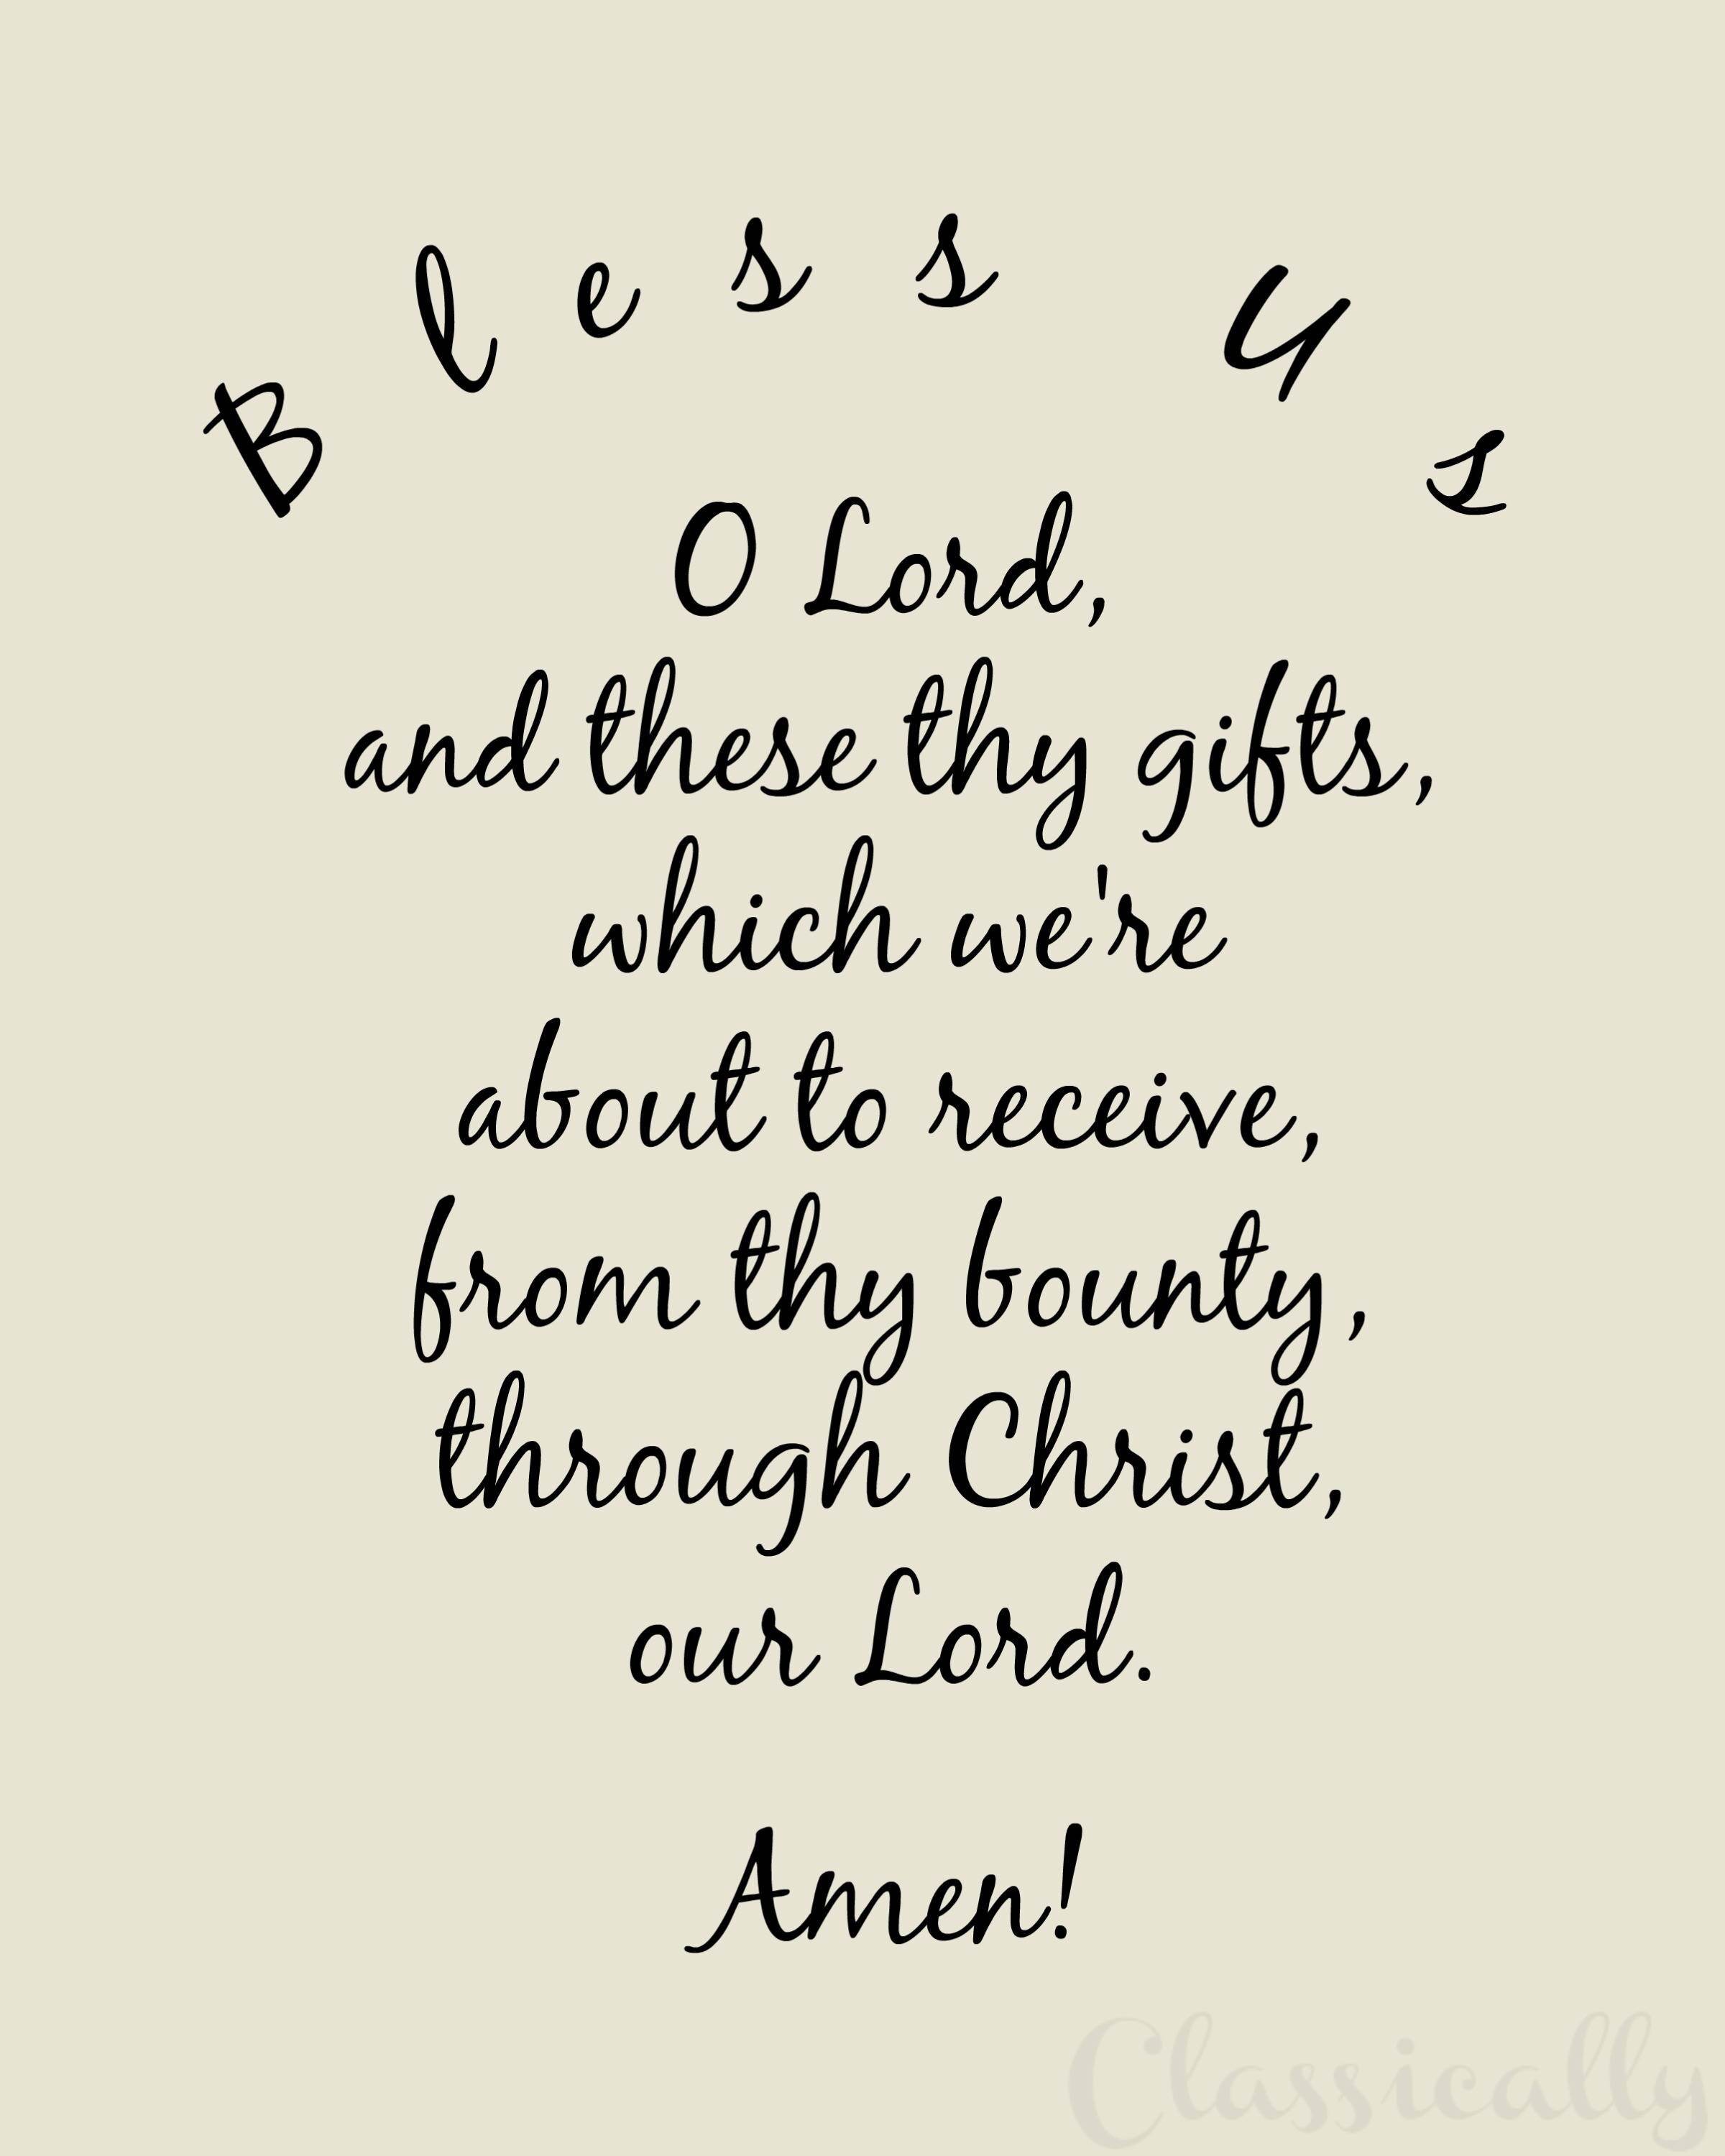 Bless Us
O Lord,
and these thy gifts,
which we're
about to receive,
from thy bounty,
through Christ,
our Lord.
Amen!
Classically